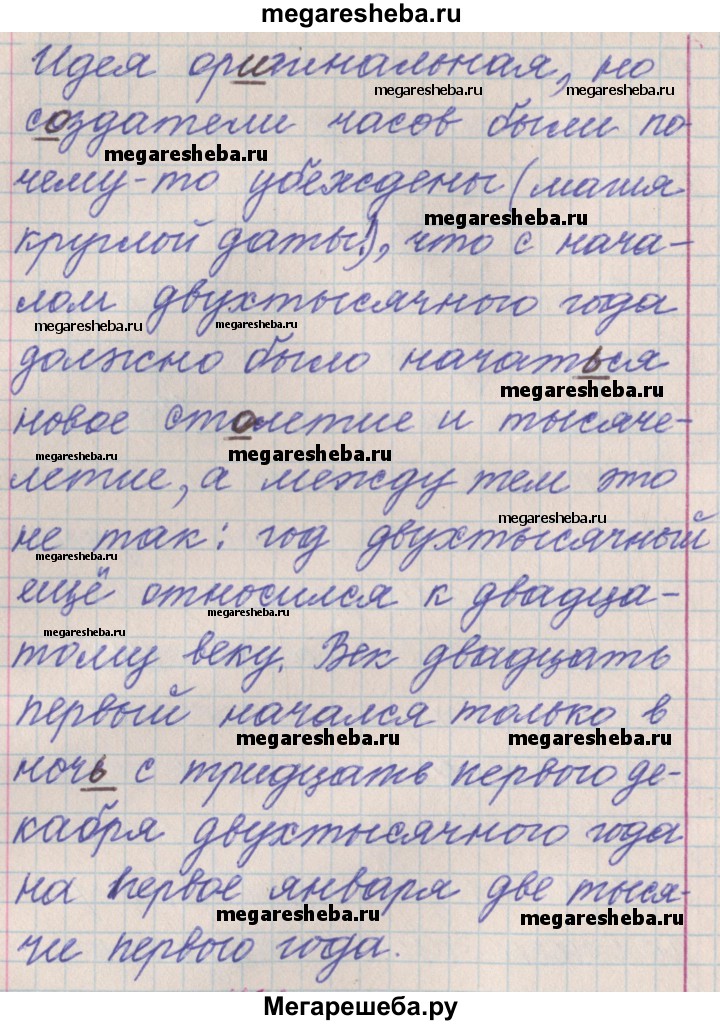 megaresheba.ru
Идея оригинальная, но
megaresheba.ru megaresheba.ru
создатели часов были по-
megaresheba.ru
чему-то убеждены (магия
megaresheba.ru
круглой даты!), что с нача-
лом двухтысячного года
megaresheba.ru megaresheba.ru
должно было начаться
megaresheba.ru
новое столетие и тысяче-
megaresheba.ru megaresheba.ru
летие, а между тем это
megaresheba.ru
не так: год двухтысячный
megaresheba.ru
ещё относился к двадца-
megaresheba.ru megaresheba.ru
тому веку. Век двадцать
первый начался только в
megaresheba.ru megaresheba.ru
ночь с тридцать первого де-
кабря двухтысячного года
на первое января две тыся-
megaresheba.ru megaresheba.ru
чи первого года.
Мегарешеба.ру